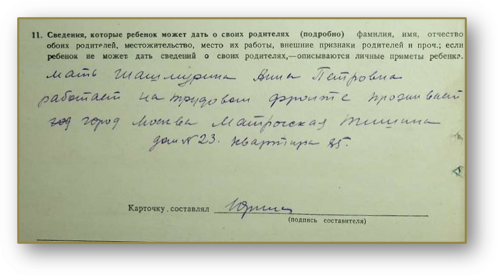 11. Сведения, которые ребенок может дать о своих родителях (подробно) фамилия, имя, отчество
обоих родителей, местожительство, место их работы, внешние признаки родителей и проч.; если
ребенок не может дать сведений о своих родителях,—описываются личные приметы ребенка.
Мать Шашмурина Анна Петровна
работает на трудовом фронте проживает
город Москва Матросская тишина
дом № 23. квартира 25.
Карточку составлял
(подпись составителя)